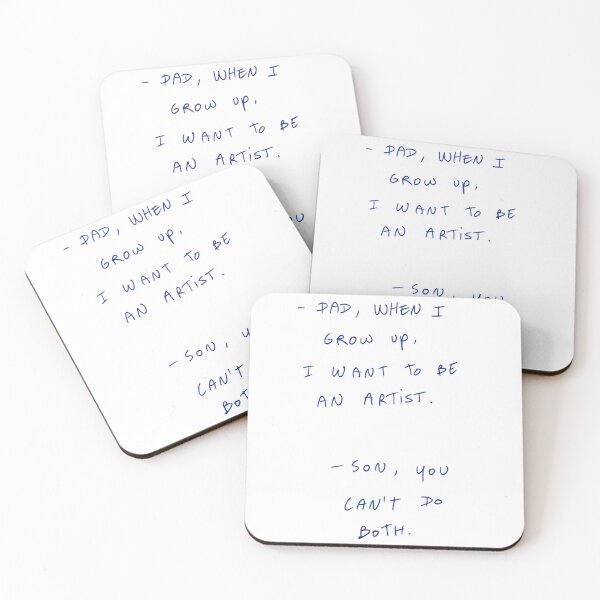 - DAD, WHEN I
GROW UP,
I WANT TO BE
AN ARTIST.
- DAD, WHEN I
GROW UP,
I WANT TO BE
AN ARTIST.
- SON, YOU
- DAD, WHEN I
GROW UP,
I WANT TO BE
AN ARTIST.
- SON,
CAN'T
- DAD, WHEN I
GROW UP,
I WANT TO BE
AN ARTIST.
- SON, YOU
CAN'T DO
BOTH.